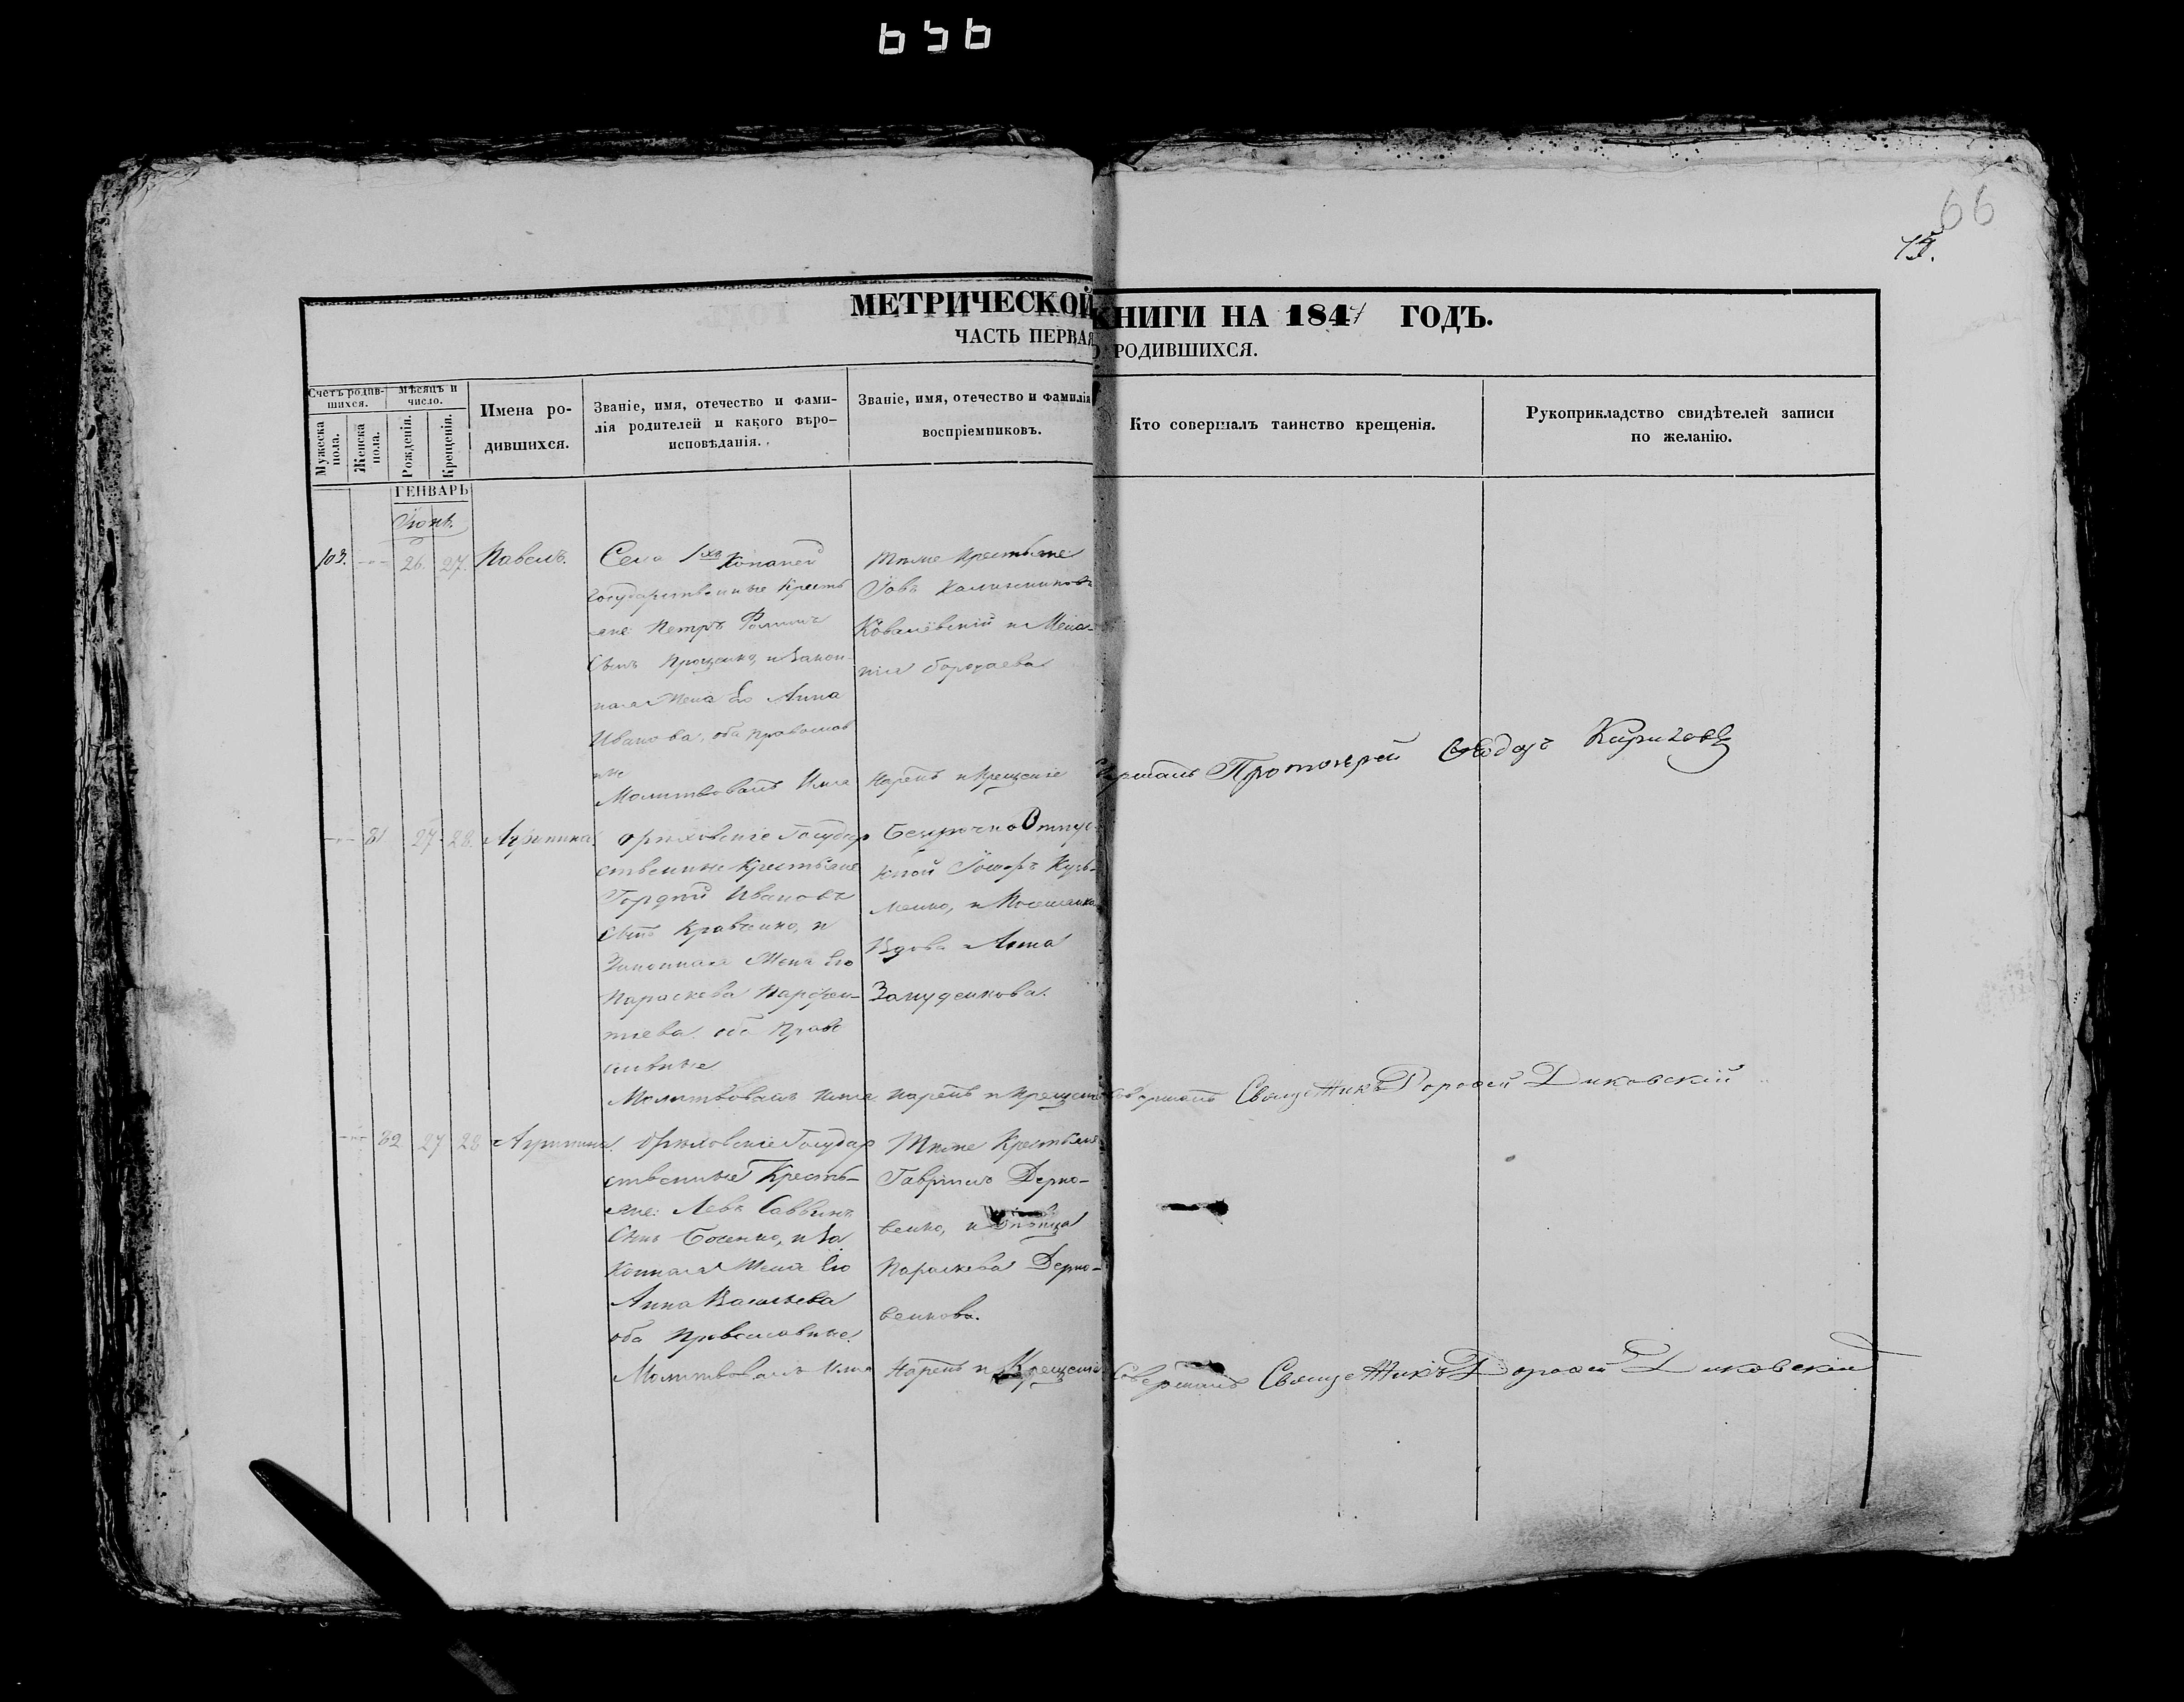 656
66
75.
МЕТРИЧЕСКОЙ КНИГИ НА 1847 ГОДЪ.
ЧАСТЬ ПЕРВАЯ О РОДИВШИХСЯ.
Счетъ родившихся.
Мужеска пола.
Женска пола.
Мѣсяцъ и число.
Рожденія.
Крещенія.
Имена родившихся.
Званіе, имя, отечество и фамилія родителей и какого вѣроисповѣданія.
Званіе, имя, отечество и фамилія воспріемниковъ.
Кто совершалъ таинство крещенія.
Рукоприкладство свидѣтелей записи по желанію.
ГЕНВАРЬ
Іюнь.
103. 26. 27. Павелъ.
Села 1хъ Копаней
Государственные Кресть
яне Петръ Фоминъ
Сынъ Проценко, и Закон-
ная Жена Его Анна
Иванова, оба православ
ные
Тѣже Крестьяне
Іовъ Калинниковъ
Ковалёвскій и Мела-
нія Борщаева
Молитвовалъ Имя Нарекъ и Крещеніе Совершалъ Протоіерей
81 27. 28. Агрипина
Орѣховскіе Государ
ственные Крестьяне
Гордѣй Ивановъ
Сынъ Кравченко, и
Законная Жена Его
Параскева Парфен-
тіева оба Право
славные
Безсрочно Отпус-
кной Іосифъ Кузь-
менко, и
Вдова Анна
Молитвовалъ Имя нарекъ и Крещеніе Совершалъ Священникъ Дорофей Диковскій
82 27 28 Агрипина.
Орѣховскіе Государ
ственные Кресть-
яне: Левъ Саввинъ
Сынъ Босенко, и За
Конная Жена Его
Анна Васильева
оба Православные.
Тѣже Крестьяне
Гавріилъ Дерно-
венко, и
Параскева Дерно-
венкова.
Молитвовалъ Имя Нарекъ и Крещеніе Совершалъ Священникъ Дорофей Диковскій